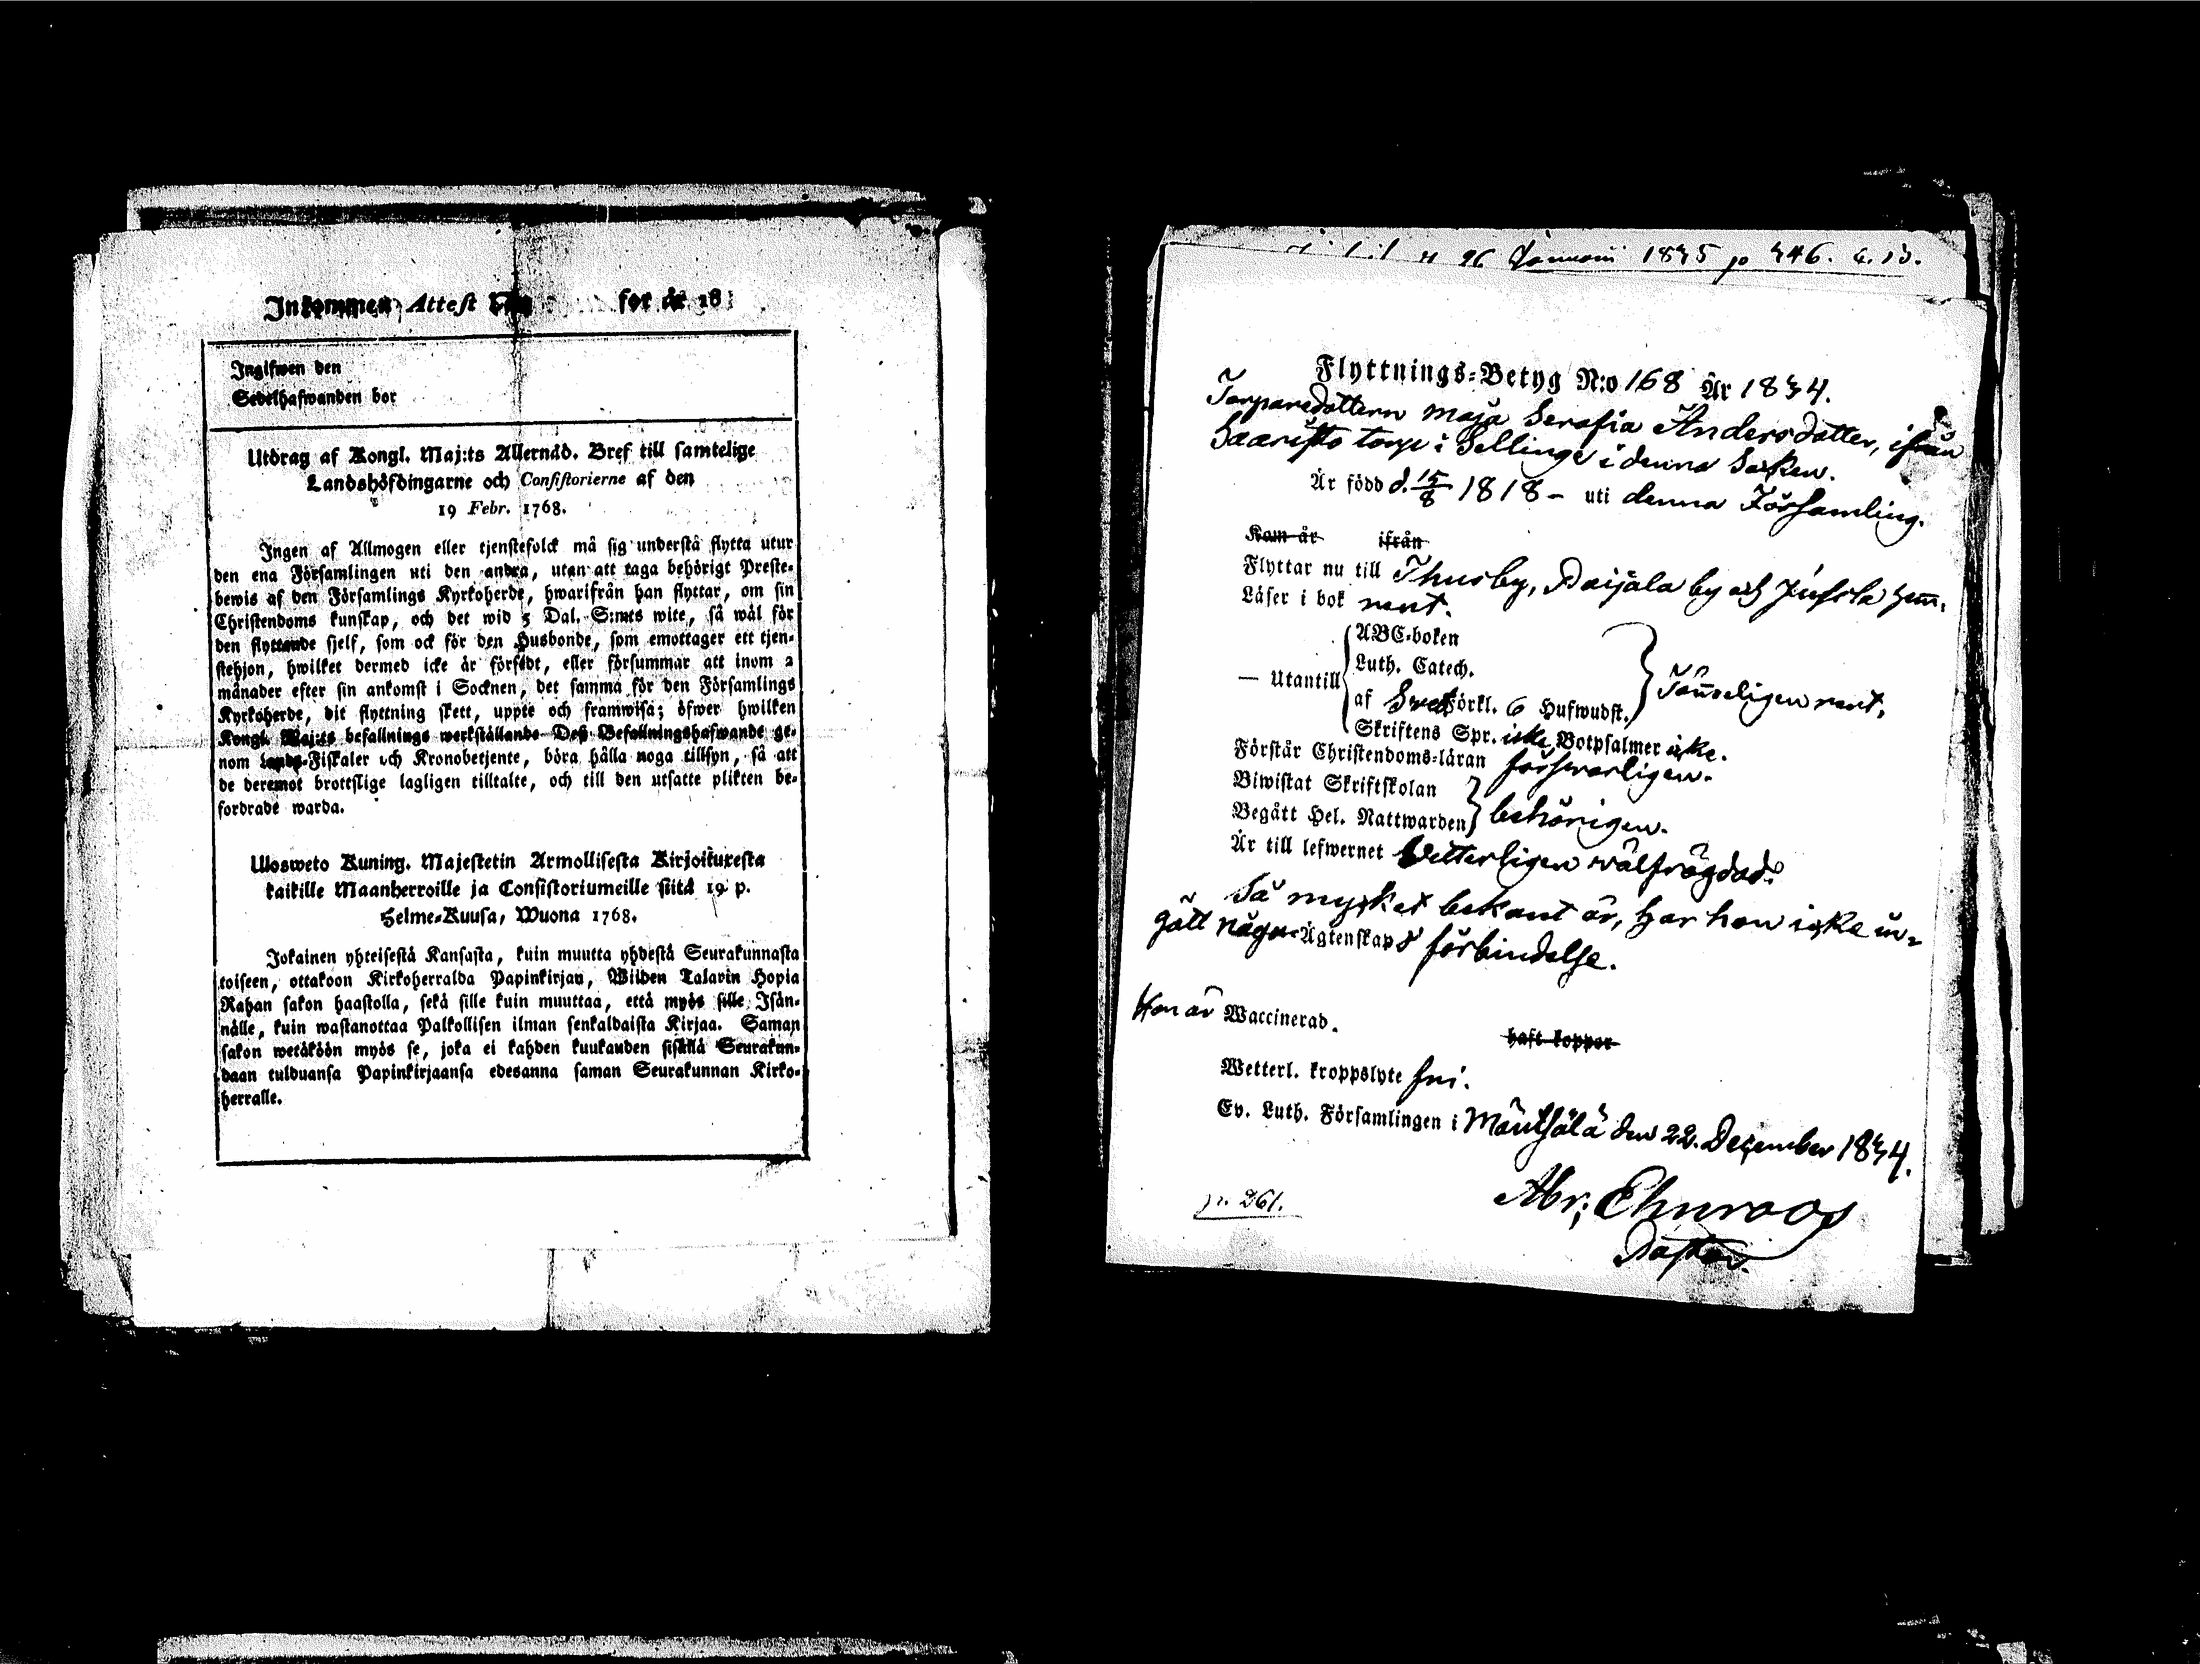 Inkommen Attest for år 18
Ingifwen den
Sedelhafwanden bor
Utdrag af Kongl. Maj:ts Allernåd. Bref till samtelige
Landshöfdingarne och Consistorierne af den
19 Febr. 1768.
Ingen af Allmogen eller tjenstefolck må sig understå flytta utur
den ena Församlingen uti den andra, utan att taga behörigt Preste-
bewis af den Församlings Kyrkoherde, hwarifrån han flyttar, om sin
Christendoms kunskap, och det wid 5 Dal. S:mts wite, så wäl för
den flyttande sjelf, som ock för den Husbonde, som emottager ett tjen-
stehjon, hwilket dermed icke är försedt, eller försummar att inom 2
månader efter sin ankomst i Socknen, det samma för den Församlings
Kyrkoherde, dit flyttning skett, uppte och framwisa; öfwer hwilken
Kongl. Maj:ts befallnings werkställande Deß Befallningshafwande ge-
nom Lands-Fiskaler och Kronobetjente, böra hålla noga tillsyn, så att
de deremot brottslige lagligen tilltalte, och till den utsatte plikten be-
fordrade warda.
Ulosweto Kuning. Majestetin Armollisesta Kirjoituxesta
kaikille Maanherroille ja Consistoriumeille siitä 19 p.
Helme-Kuusa, Wuona 1768.
Jokainen yhteisestä Kansasta, kuin muutta yhdestä Seurakunnasta
toiseen, ottakoon Kirkoherralda Papinkirjan, Wiiden Talarin Hopia
Rahan sakon haastolla, sekä sille kuin muuttaa, että myös sille Isän-
nälle, kuin wastanottaa Palkollisen ilman senkaldaista Kirjaa. Saman
sakon wetäköön myös se, joka ei kahden kuukauden sisällä Seurakun-
daan tulduansa Papinkirjaansa edesanna saman Seurakunnan Kirko-
herralle.
26 Januarii 1835 p 346.
Flyttnings-Betyg N:o 168 År 1834.
Torparedottern Maja Serafia Andersdotter, ifrån
Saaristo torp i Sellinge i denna Soken.
Är född d. 15/8 1818 – uti denna Församling.
Kom år ifrån
Flyttar nu till Thusby, Paijala by och Jussla hem.
Läser i bok rent.
ABC-boken
Luth. Catech.
— Utantill
af Sveb. Förkl. 6 Hufwudst.
Jämneligen rent.
Skriftens Spr. icke, Botpsalmer icke.
Förstår Christendoms-läran försvarligen.
Biwistat Skriftskolan
Begått Hel. Nattwarden
behörigen.
Är till lefwernet Wetterligen välfrägdad.
Så mycket bekant är, har hon icke in-
gått någon Ägtenskaps förbindelse.
Hon är Waccinerad.
haft koppor
Wetterl. kroppslyte fri.
Ev. Luth. Församlingen i Mäntsälä den 22. December 1834.
Abr; Ehnroos
Pastor.
p. 261.